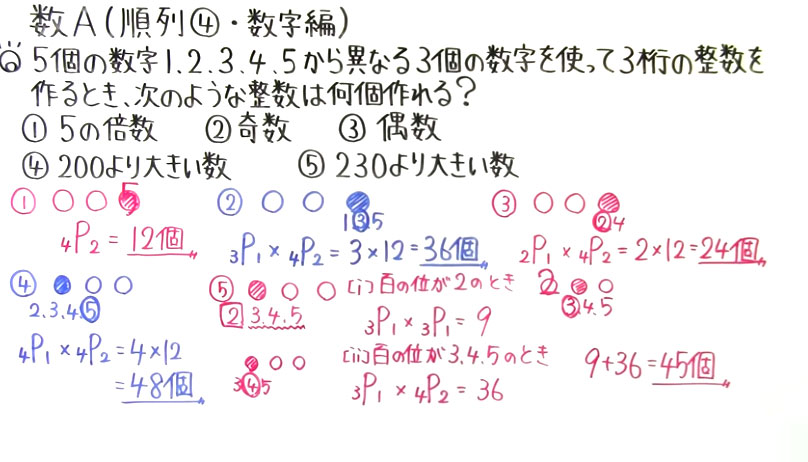 数A(順列④・数字編)
◎ 5個の数字1.2.3.4.5から異なる3個の数字を使って3桁の整数を
作るとき、次のような整数は何個作れる?
① 5の倍数 ② 奇数 ③ 偶数
④ 200より大きい数 ⑤ 230より大きい数
① ○ ○ ● 5
₄P₂ = 12個
② ○ ○ ●
1 ③ 5
₃P₁ × ₄P₂ = 3×12 = 36個
③ ○ ○ ●
② 4
₂P₁ × ₄P₂ = 2×12 = 24個
④ ● ○ ○
2.3.4.⑤
₄P₁ × ₄P₂ = 4×12
= 48個
⑤ ● ○ ○
2 3.4.5
[i] 百の位が2のとき
2 ● ○
③.4.5
₃P₁ × ₃P₁ = 9
● ○ ○
3 ④ 5
[ii] 百の位が3.4.5のとき
₃P₁ × ₄P₂ = 36
9+36 = 45個